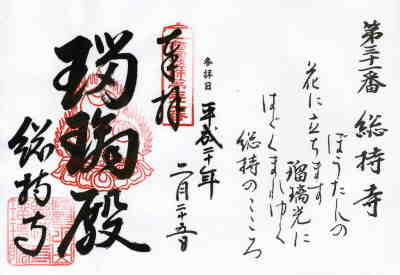 第三十一番 総持寺
ぼうたんの
花に立ちます
瑠璃光に
はぐくまれゆく
総持のこころ
参拝日 平成二十年
二月二十五日
奉拝
瑠璃殿
総持寺